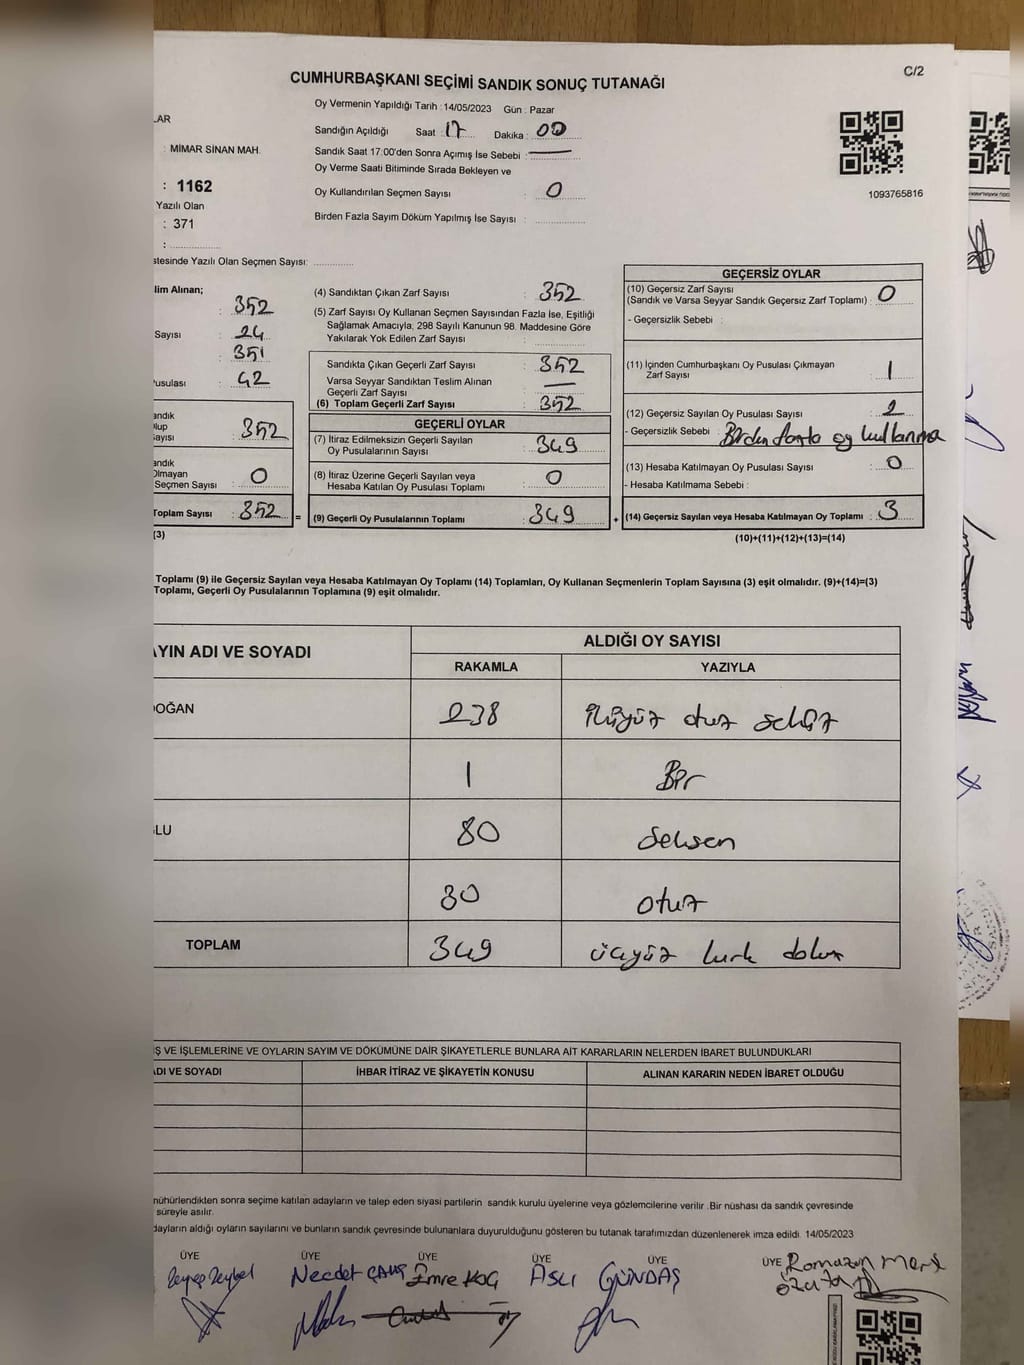 C/2
CUMHURBAŞKANI SEÇİMİ SANDIK SONUÇ TUTANAĞI
LAR
Oy Vermenin Yapıldığı Tarih : 14/05/2023 Gün : Pazar
Sandığın Açıldığı Saat : 17 Dakika : 00
: MİMAR SİNAN MAH.
Sandık Saat 17:00'den Sonra Açımış İse Sebebi :
Oy Verme Saati Bitiminde Sırada Bekleyen ve
: 1162
Oy Kullandırılan Seçmen Sayısı : 0
1093765816
Yazılı Olan
Birden Fazla Sayım Döküm Yapılmış İse Sayısı :
: 371
:
stesinde Yazılı Olan Seçmen Sayısı:
lim Alınan;
: 352
Sayısı : 24
351
usulası : 42
andık
lup
ayısı : 352
andık
Olmayan
Seçmen Sayısı : 0
Toplam Sayısı : 352 =
(3)
(4) Sandıktan Çıkan Zarf Sayısı : 352
(5) Zarf Sayısı Oy Kullanan Seçmen Sayısından Fazla İse, Eşitliği
Sağlamak Amacıyla, 298 Sayılı Kanunun 98. Maddesine Göre
Yakılarak Yok Edilen Zarf Sayısı :
Sandıkta Çıkan Geçerli Zarf Sayısı : 352
Varsa Seyyar Sandıktan Teslim Alınan
Geçerli Zarf Sayısı :
(6) Toplam Geçerli Zarf Sayısı : 352
GEÇERLİ OYLAR
(7) İtiraz Edilmeksizin Geçerli Sayılan
Oy Pusulalarının Sayısı : 349
(8) İtiraz Üzerine Geçerli Sayılan veya
Hesaba Katılan Oy Pusulası Toplamı : 0
(9) Geçerli Oy Pusulalarının Toplamı : 349 +
GEÇERSİZ OYLAR
(10) Geçersiz Zarf Sayısı
(Sandık ve Varsa Seyyar Sandık Geçersiz Zarf Toplamı) : 0
- Geçersizlik Sebebi :
(11) İçinden Cumhurbaşkanı Oy Pusulası Çıkmayan
Zarf Sayısı : 1
(12) Geçersiz Sayılan Oy Pusulası Sayısı : 2
- Geçersizlik Sebebi : Birden fazla oy kullanma
(13) Hesaba Katılmayan Oy Pusulası Sayısı : 0
- Hesaba Katılmama Sebebi :
(14) Geçersiz Sayılan veya Hesaba Katılmayan Oy Toplamı : 3
(10)+(11)+(12)+(13)=(14)
Toplamı (9) ile Geçersiz Sayılan veya Hesaba Katılmayan Oy Toplamı (14) Toplamları, Oy Kullanan Seçmenlerin Toplam Sayısına (3) eşit olmalıdır. (9)+(14)=(3)
Toplamı, Geçerli Oy Pusulalarının Toplamına (9) eşit olmalıdır.
AYIN ADI VE SOYADI ALDIĞI OY SAYISI
RAKAMLA YAZIYLA
DOĞAN 238 ikiyüz otuz sekiz
1 Bir
LU 80 Seksen
30 otuz
TOPLAM 349 üçyüz kırk dokuz
Ş VE İŞLEMLERİNE VE OYLARIN SAYIM VE DÖKÜMÜNE DAİR ŞİKAYETLERLE BUNLARA AİT KARARLARIN NELERDEN İBARET BULUNDUKLARI
ADI VE SOYADI İHBAR İTİRAZ VE ŞİKAYETİN KONUSU ALINAN KARARIN NEDEN İBARET OLDUĞU
mühürlendikten sonra seçime katılan adayların ve talep eden siyasi partilerin sandık kurulu üyelerine veya gözlemcilerine verilir .Bir nüshası da sandık çevresinde
süreyle asılır.
dayların aldığı oyların sayılarını ve bunların sandık çevresinde bulunanlara duyurulduğunu gösteren bu tutanak tarafımızdan düzenlenerek imza edildi. 14/05/2023
ÜYE ÜYE ÜYE ÜYE ÜYE ÜYE Ramazan Mert
Zeynep Zeybel Necdet ÇAVUŞ Emre KOÇ ASLI GÜNDAŞ